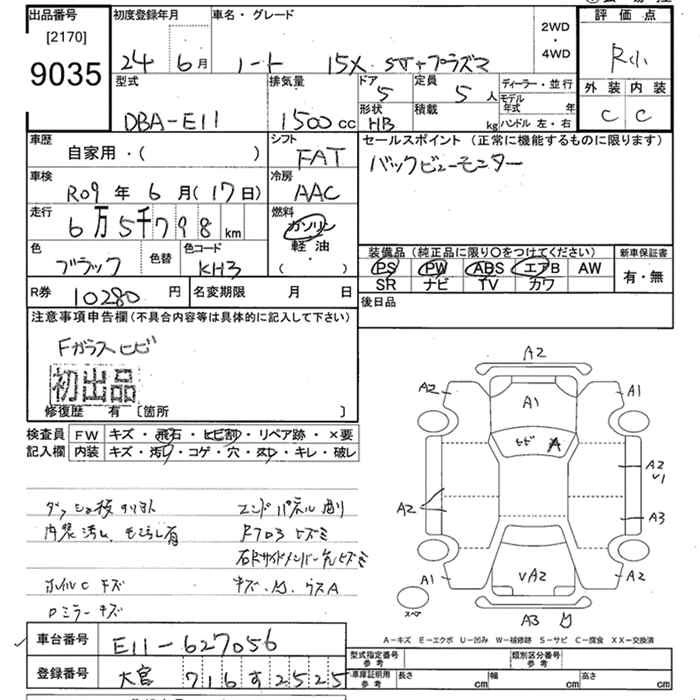 出品番号
[2170]
9035
初度登録年月
24 6月
車名・グレード
ノート 15X
2WD
・
4WD
評価点
R小
外装 内装
C C
型式
DBA-E11
排気量
1500cc
ドア
5
定員
5人
形状
HB
積載
kg
ディーラー・並行
モデル年式 年
ハンドル 左・右
車歴
自家用・( )
シフト
FAT
セールスポイント(正常に機能するものに限ります)
バックビューモニター
車検
R09年6月(17日)
冷房
AAC
走行
6万5千798km
燃料
ガソリン
軽油
( )
色
ブラック
色替
色コード
KH3
装備品(純正品に限り〇をつけてください)
PS PW ABS エアB AW
SR ナビ TV カワ
新車保証書
有・無
R券
10280円
名変期限 月 日
後日品
注意事項申告欄(不具合内容等は具体的に記入して下さい)
Fガラスヒビ
初出品
修復歴 有 [箇所 ]
検査員
記入欄
FW キズ・飛石・ヒビ割・リペア跡・×要
内装 キズ・汚れ・コゲ・穴・スレ・キレ・破レ
内装汚れ
エンドパネル曲り
ホイルC キズ
ミラーキズ
A2
A2
A1
A1
ヒビ
A
A2
A2
V1
A3
A1
VA2
A2
スペア
A3
A-キズ E-エクボ U-凹み W-補修跡 S-サビ C-腐食 XX-交換済
車台番号
E11-627056
登録番号
大宮 716 す 2525
型式指定番号
参考
類別区分番号
参考
車庫証明用
参考
長さ cm
幅 cm
高さ cm